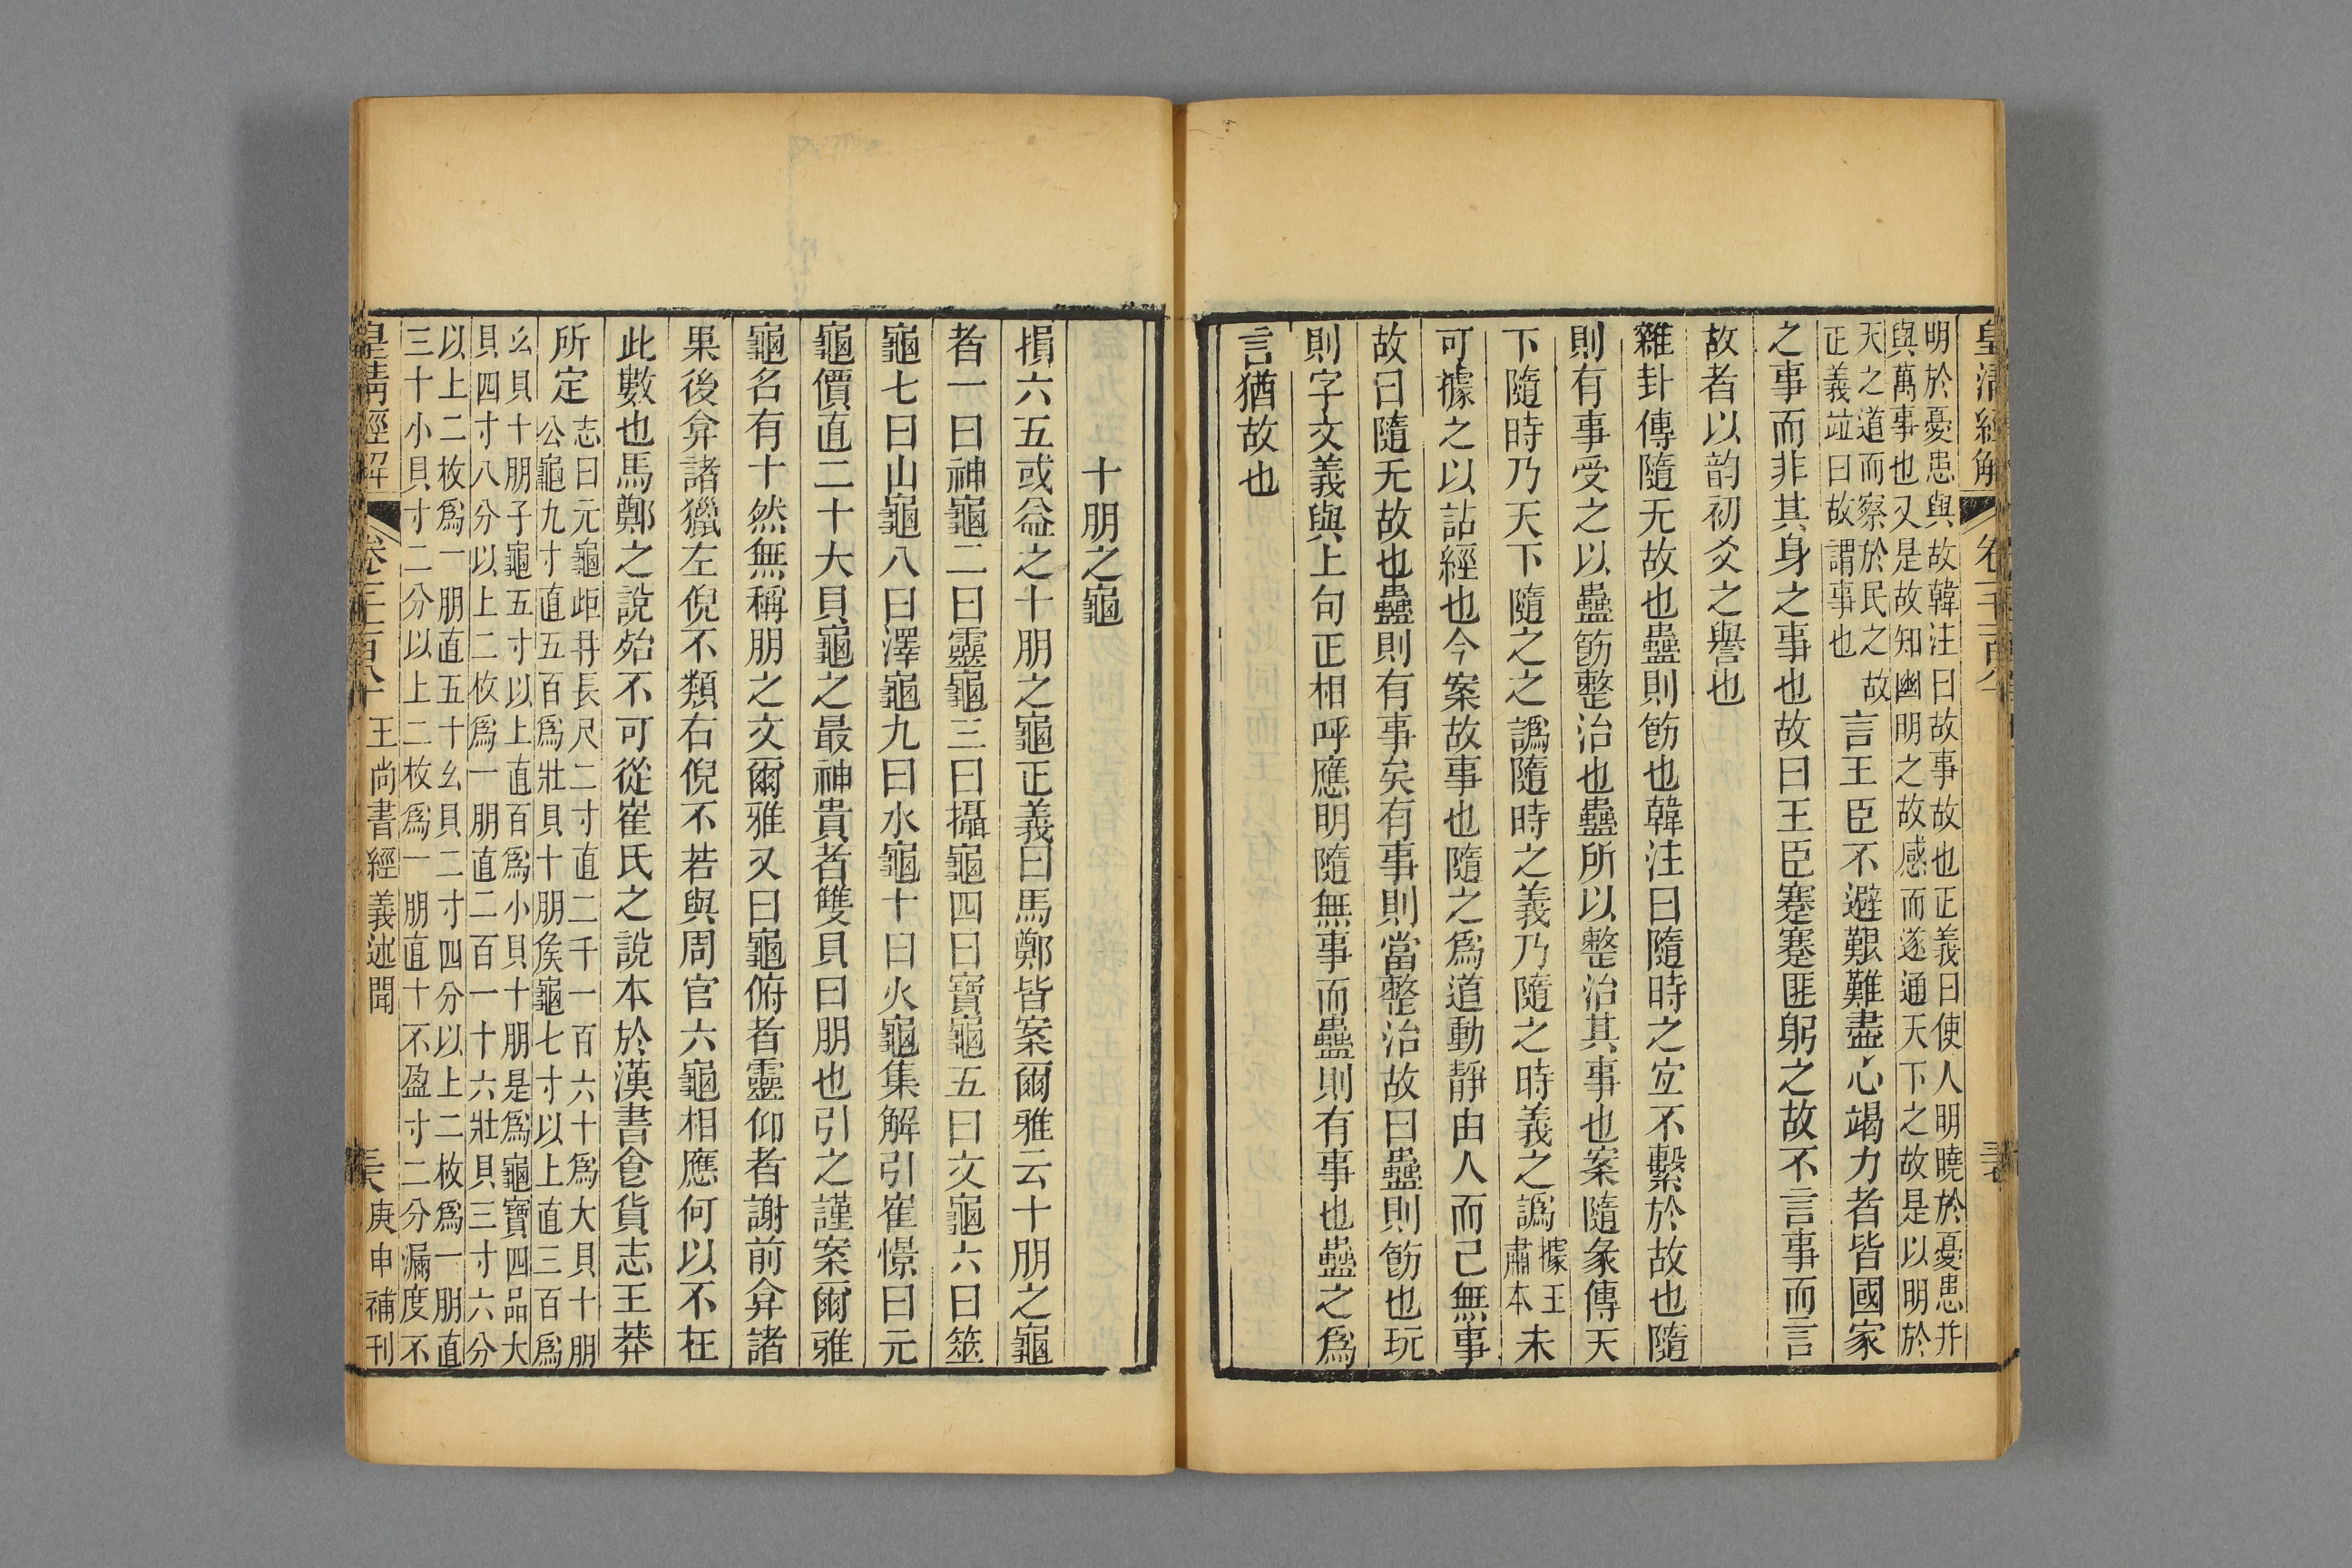 皇清經解
卷一千一百八
明於憂患與故韓注曰故事故也正義曰使人明曉於憂患并
與萬事也又是故知幽明之故感而遂通天下之故是以明於
天之道而察於民之故
正義竝曰故謂事也
言王臣不避艱難盡心竭力者皆國家
之事而非其身之事也故曰王臣蹇蹇匪躬之故不言事而言
故者以韵初爻之譽也
雜卦傳隨无故也蠱則飭也韓注曰隨時之宐不繫於故也隨
則有事受之以蠱飭整治也蠱所以整治其事也案隨彖傳天
下隨時乃天下隨之之譌隨時之義乃隨之時義之譌
據王
肅本
未
可據之以詁經也今案故事也隨之爲道動靜由人而己無事
故曰隨无故也蠱則有事矣有事則當整治故曰蠱則飭也玩
則字文義與上句正相呼應明隨無事而蠱則有事也蠱之爲
言猶故也
十朋之龜
損六五或益之十朋之龜正義曰馬鄭皆案爾雅云十朋之龜
者一曰神龜二曰靈龜三曰攝龜四曰寶龜五曰文龜六曰筮
龜七曰山龜八曰澤龜九曰水龜十曰火龜集解引崔憬曰元
龜價直二十大貝龜之最神貴者雙貝曰朋也引之謹案爾雅
龜名有十然無稱朋之文爾雅又曰龜俯者靈仰者謝前弇諸
果後弇諸獵左倪不類右倪不若與周官六龜相應何以不在
此數也馬鄭之說殆不可從崔氏之說本於漢書食貨志王莽
所定
志曰元龜岠冄長尺二寸直二千一百六十爲大貝十朋
公龜九寸直五百爲壯貝十朋矦龜七寸以上直三百爲
么貝十朋子龜五寸以上直百爲小貝十朋是爲龜寶四品大
貝四寸八分以上二枚爲一朋直二百一十六壯貝三寸六分
以上二枚爲一朋直五十幺貝二寸四分以上二枚爲一朋直
三十小貝寸二分以上二枚爲一朋直十不盈寸二分漏度不
皇清經解
卷一千一百八十
王尚書經義述聞
庚申補刊